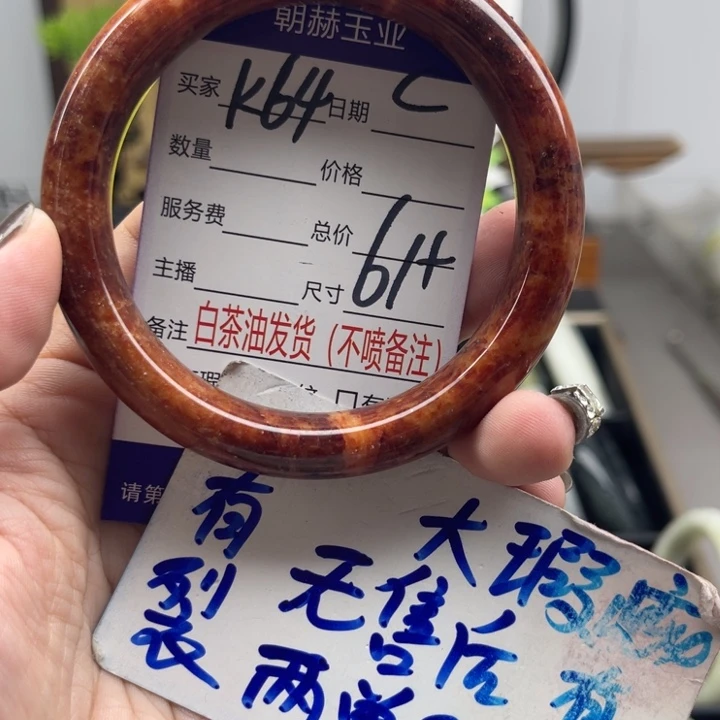 朝赫玉业
买家 K64 日期 C
数量 价格
服务费 总价
主播 尺寸 61+
备注 白茶油发货（不喷备注）
请第
有裂
无售后
大瑕疵
两